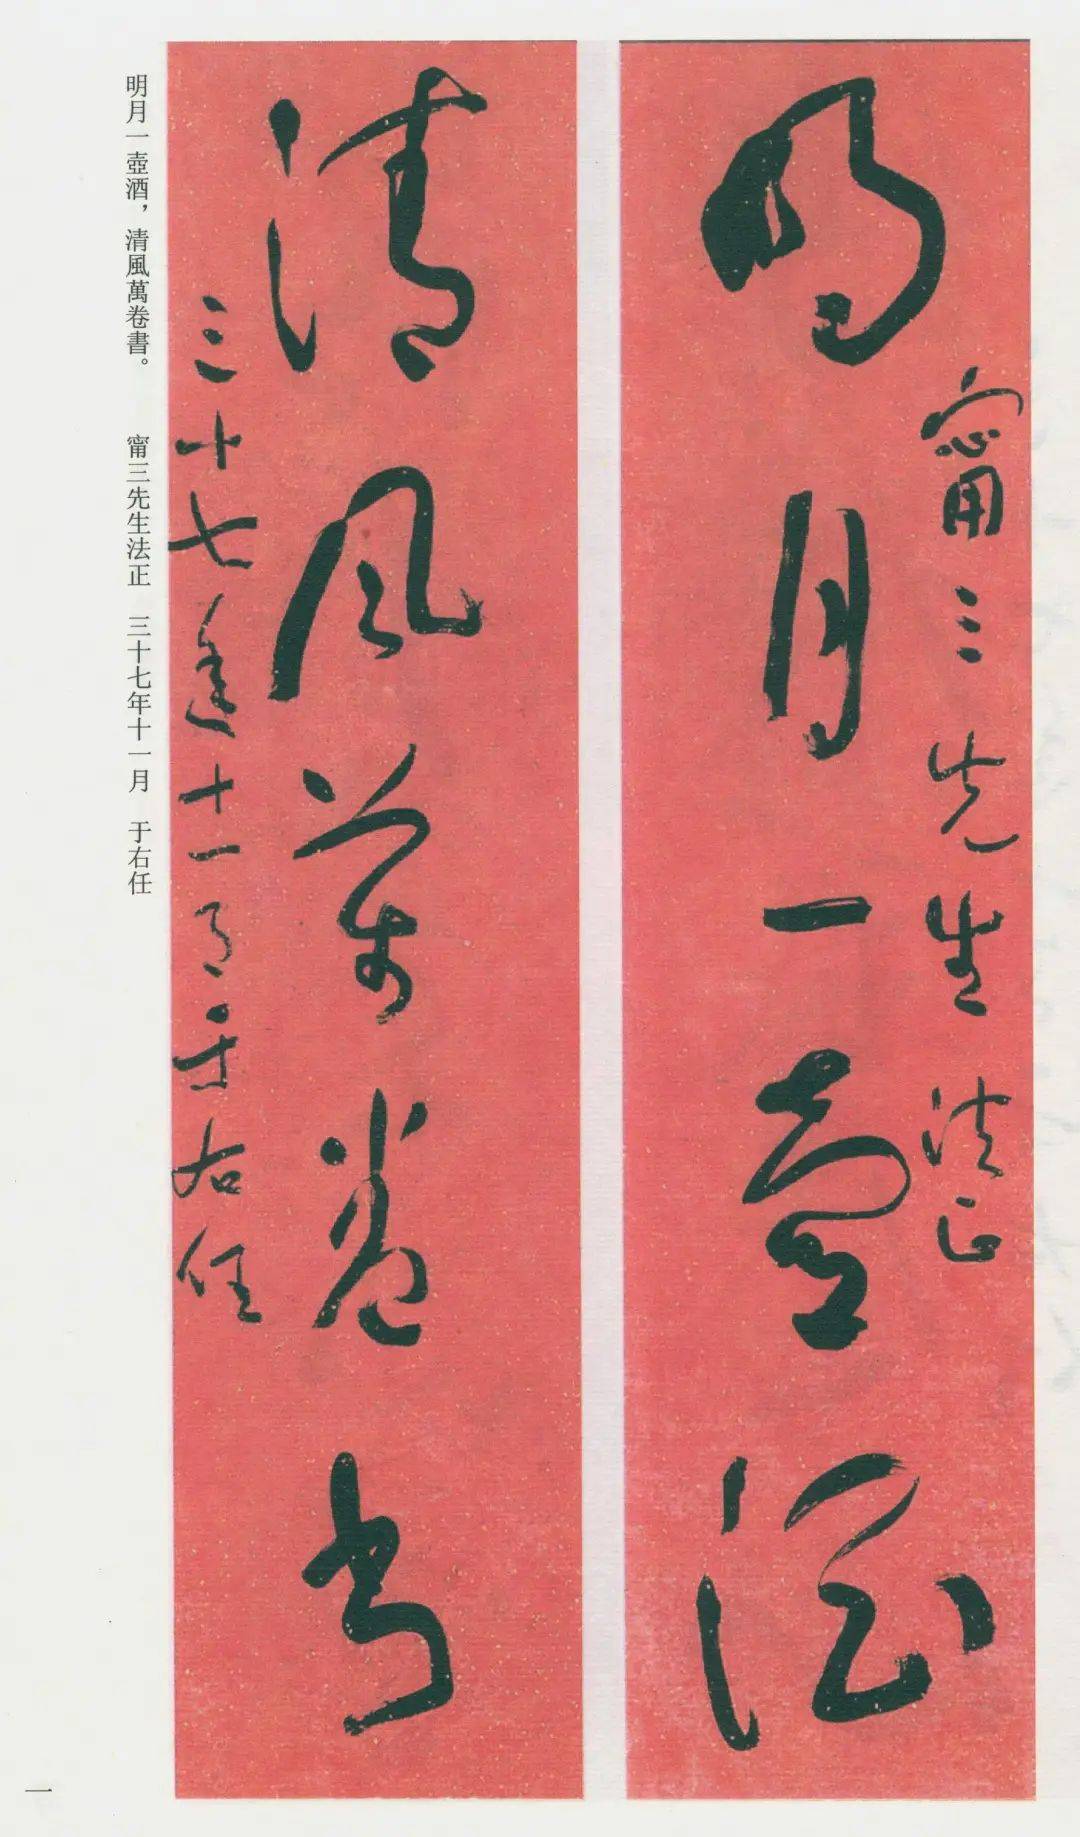 甯三先生法正
明月一壺酒
清風萬卷書
三十七年十一月于右任
明月一壺酒，清風萬卷書。　甯三先生法正　三十七年十一月　于右任
一